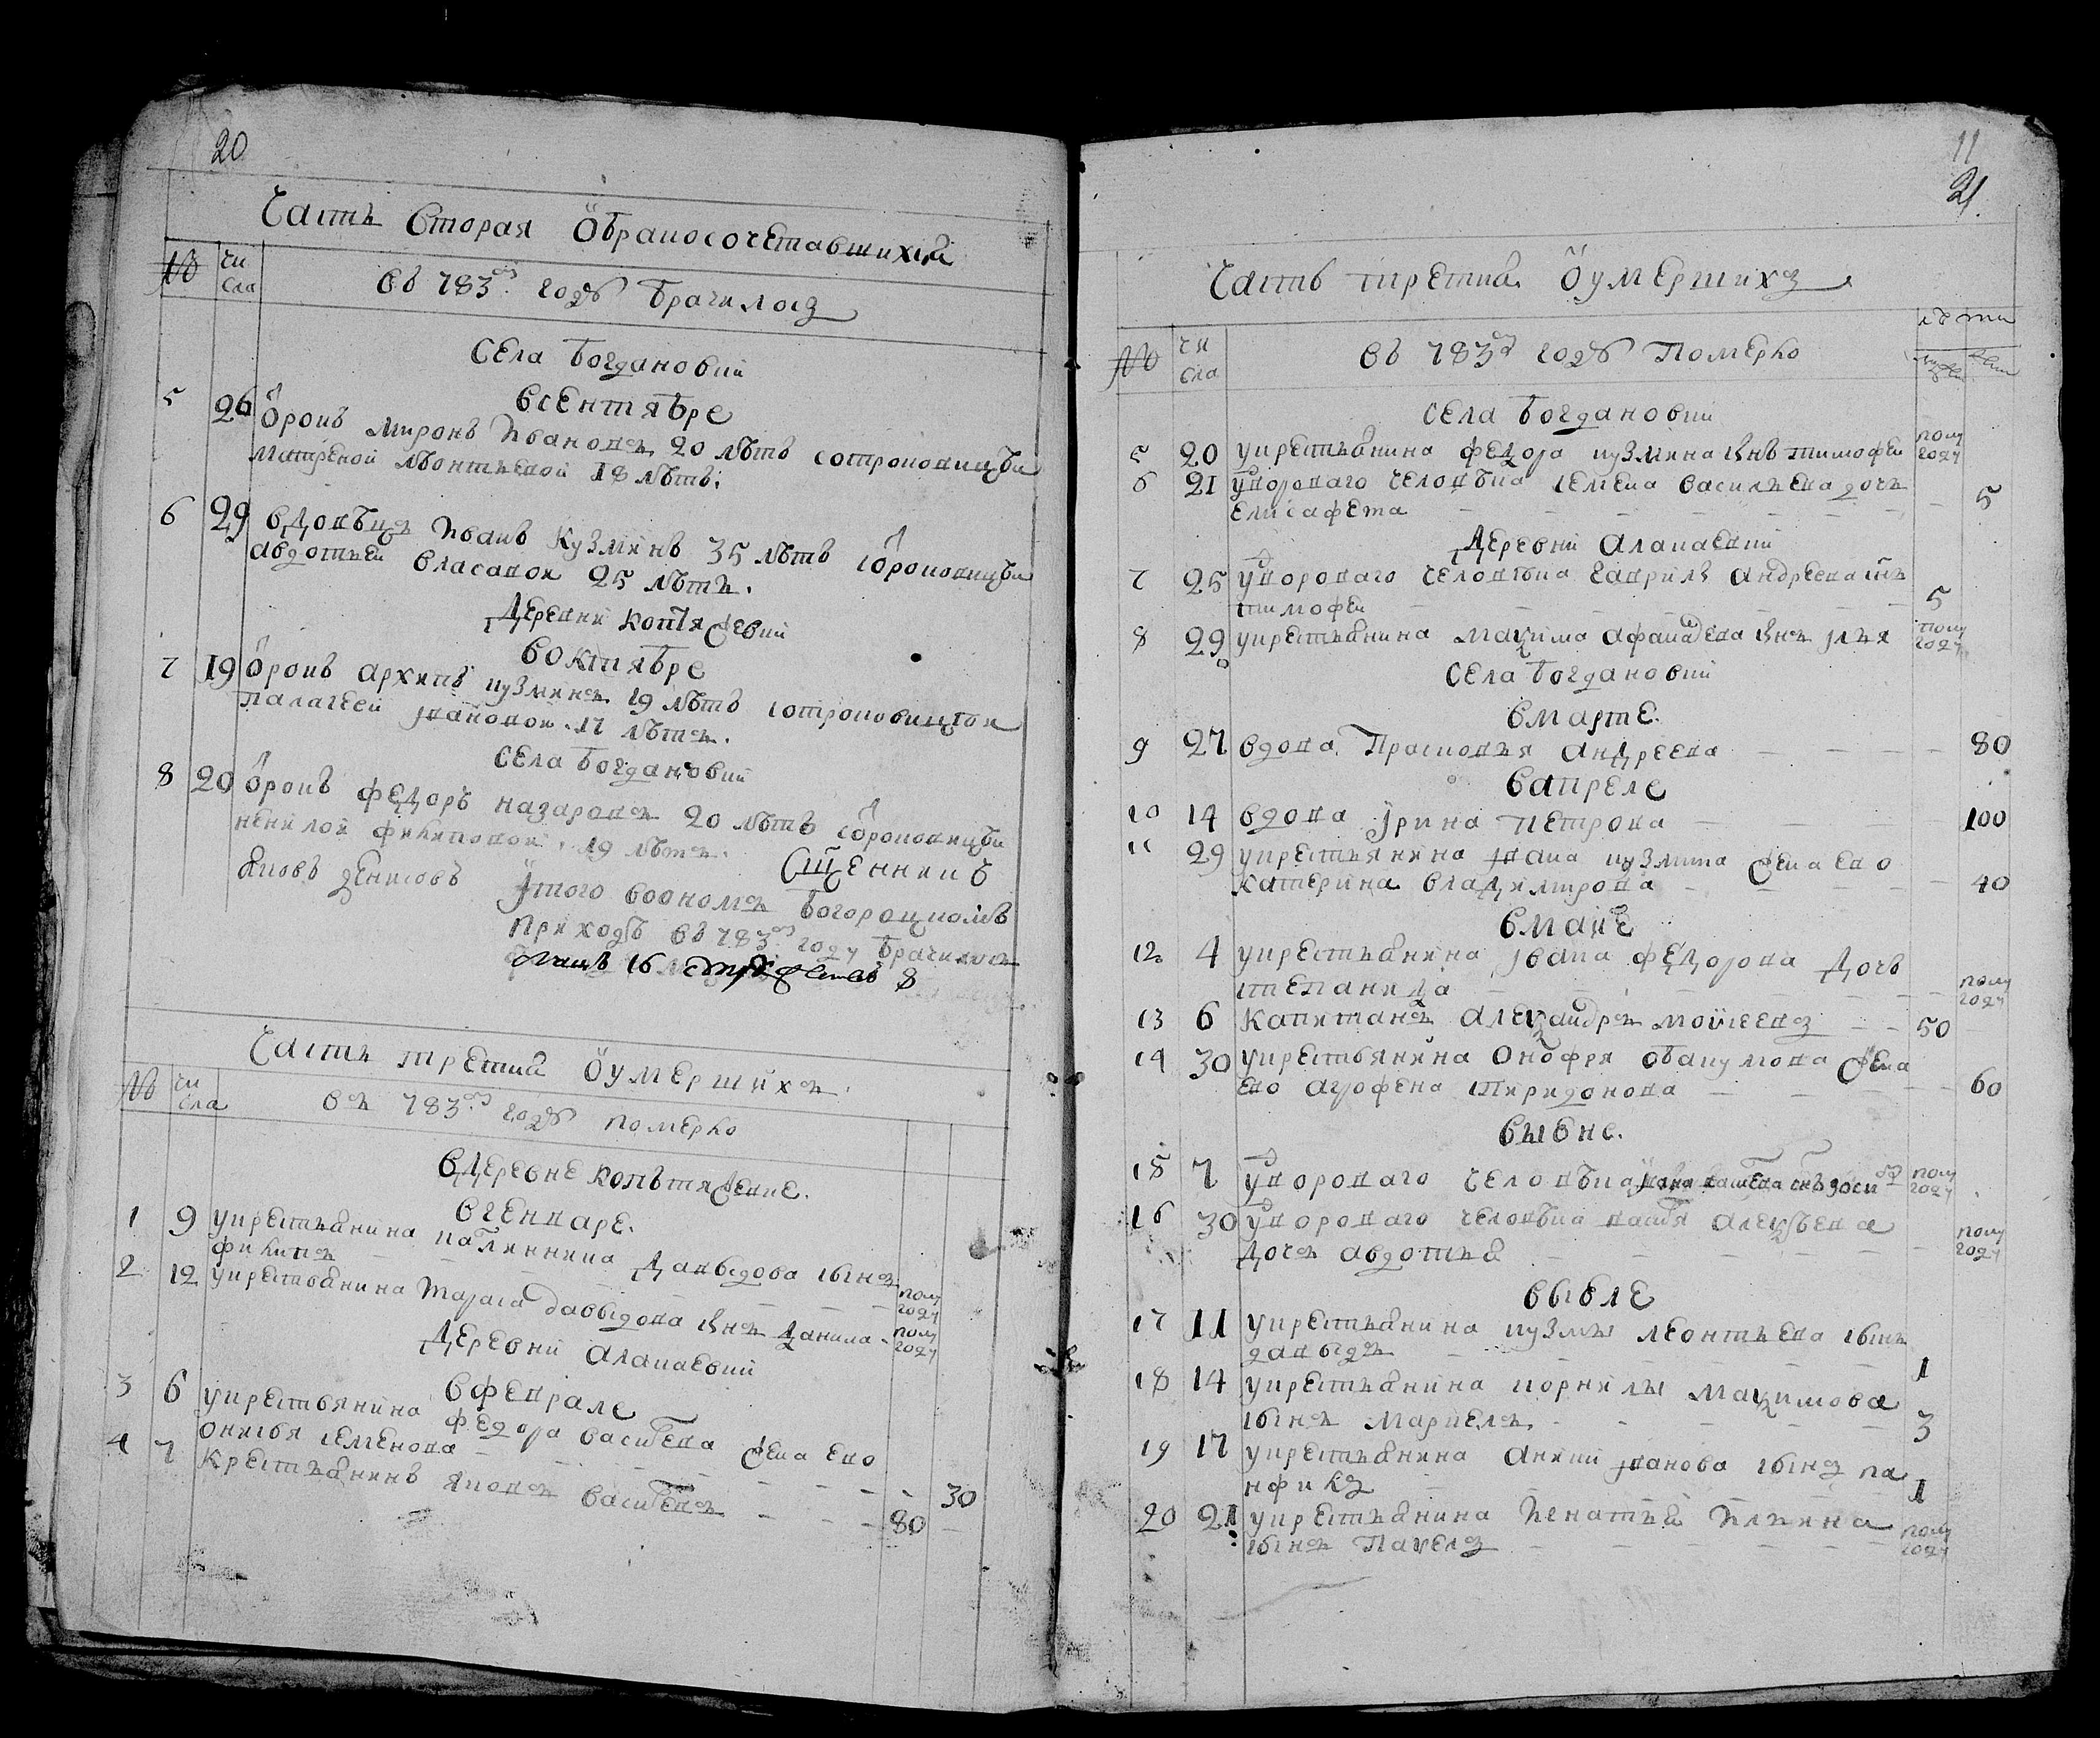 20
Часть вторая О бракосочетавшихся
№ чи
сла
въ 783м годѣ Бракилось
Села Богдановки
5 26 всентябре
Отрокъ миронъ Ивановъ 20 лѣтъ сотроковицѣи
матреной лѣонтьевой 18 лѣтъ.
6 29 вдовѣцъ Иванъ Кузминъ 35 лѣтъ сотроковицѣи
авдотьеи власавои 25 лѣтъ.
деревни коптяжевки
воктябре
7 19 Отрокъ архипъ кузминъ 19 лѣтъ сотроковицѣи
палагееи ивановои 17 лѣтъ.
Села Богдановки
8 20 Отрокъ федоръ назаровъ 20 лѣтъ сотроковицѣи
ненилои филиповои 19 лѣтъ.
Сщенникъ
Яковъ денисовъ
Jтого водномъ Богороцкомъ
приходѣ въ 783м году Бракилось
16 8
Часть третия О умершихъ
№ чи
сла
въ 783м годѣ померло
вдеревне копьтяжевке.
вгенваре.
1 9 укрестьянина калинника давыдова сынъ
филипъ полу
году
2 12 укрестьянина тараса давыдова снъ данила полу
году
деревни алапаевки
вфеврале
3 6 укрестьянина федора васильева жена ево
семенова 30
4 7 Крестьянинъ яковъ васильевъ 80
11
21
Часть третия О умершихъ
№ чи
сла
въ 783м годѣ Померло
лѣта
Села Богдановки
5 20 укрестьянина федора кузмина снъ тимофеи полу
году
6 21 удвороваго человѣка семена васильева дочь
елисафета 5
деревни алапаевки
7 25 удвороваго человѣка гаврилы андреева снъ
тимофеи 5
8 29 укрестьянина максима афанасева снъ илья полу
году
Села Богдановки
вмарте.
9 27 вдова Прасковья андреева 80
вапреле
10 14 вдова Ирина петрова 100
11 29 укрестьянина ивана кузмина жена ево
катерина владимирова 40
вмаие
12 4 укрестьянина ивана федорова дочь
степанида полу
году
13 6 Капитанъ александръ моисеевъ 50
14 30 укрестьянина Онофрия абакумова жена
ево агрофена спиридонова 60
выюне.
15 7 удвороваго человѣка полу
году
16 30 удвороваго человѣка алексѣева
дочь авдотья полу
году
выюле
17 11 укрестьянина кузмы леонтьева сынъ
давыдъ 1
18 14 укрестьянина корнилы максимова
сынъ маркелъ 3
19 17 укрестьянина аники иванова сынъ па
нфилъ 1
20 21 укрестьянина Игнатья Ильина
сынъ Павелъ полу
году